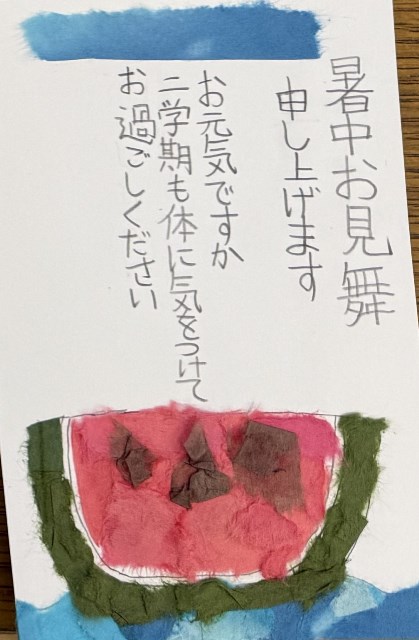 暑中お見舞
申し上げます
お元気ですか
二学期も体に気をつけて
お過ごしください